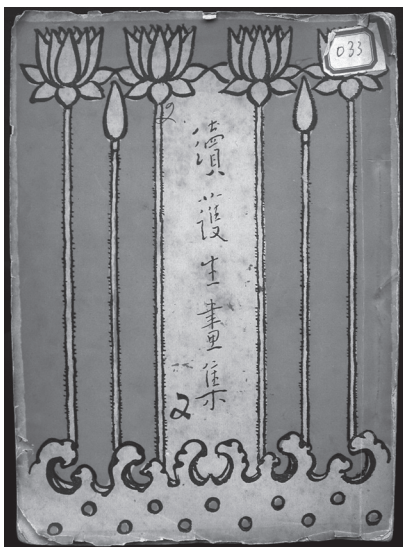 033
2
續護生畫集
2